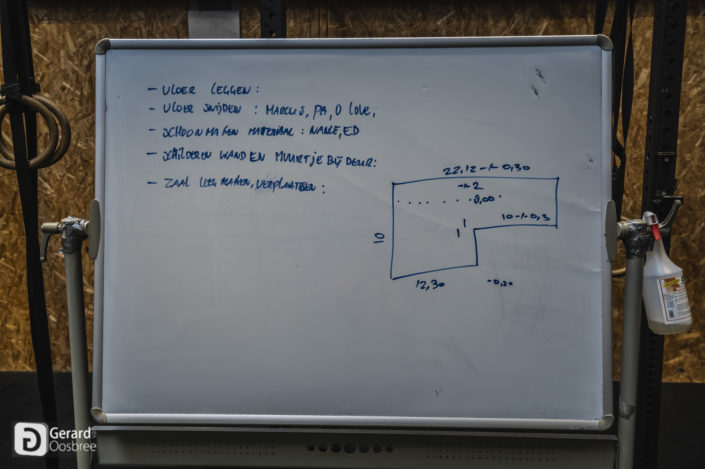 - VLOER LEGGEN :
- VLOER SNIJDEN : MARCUS, PA, D
- SCHOONMAKEN MATERIAAL : NANCE, ED
- SCHILDEREN WAND EN MUURTJE BIJ DEUR :
- ZAAL LEEG MAKEN, VERPLAATSEN :
22,12 -/- 0,30
-/- 2
8,00
10 -/- 0,3
10
12,30
-0,20
Gerard
Oosbree